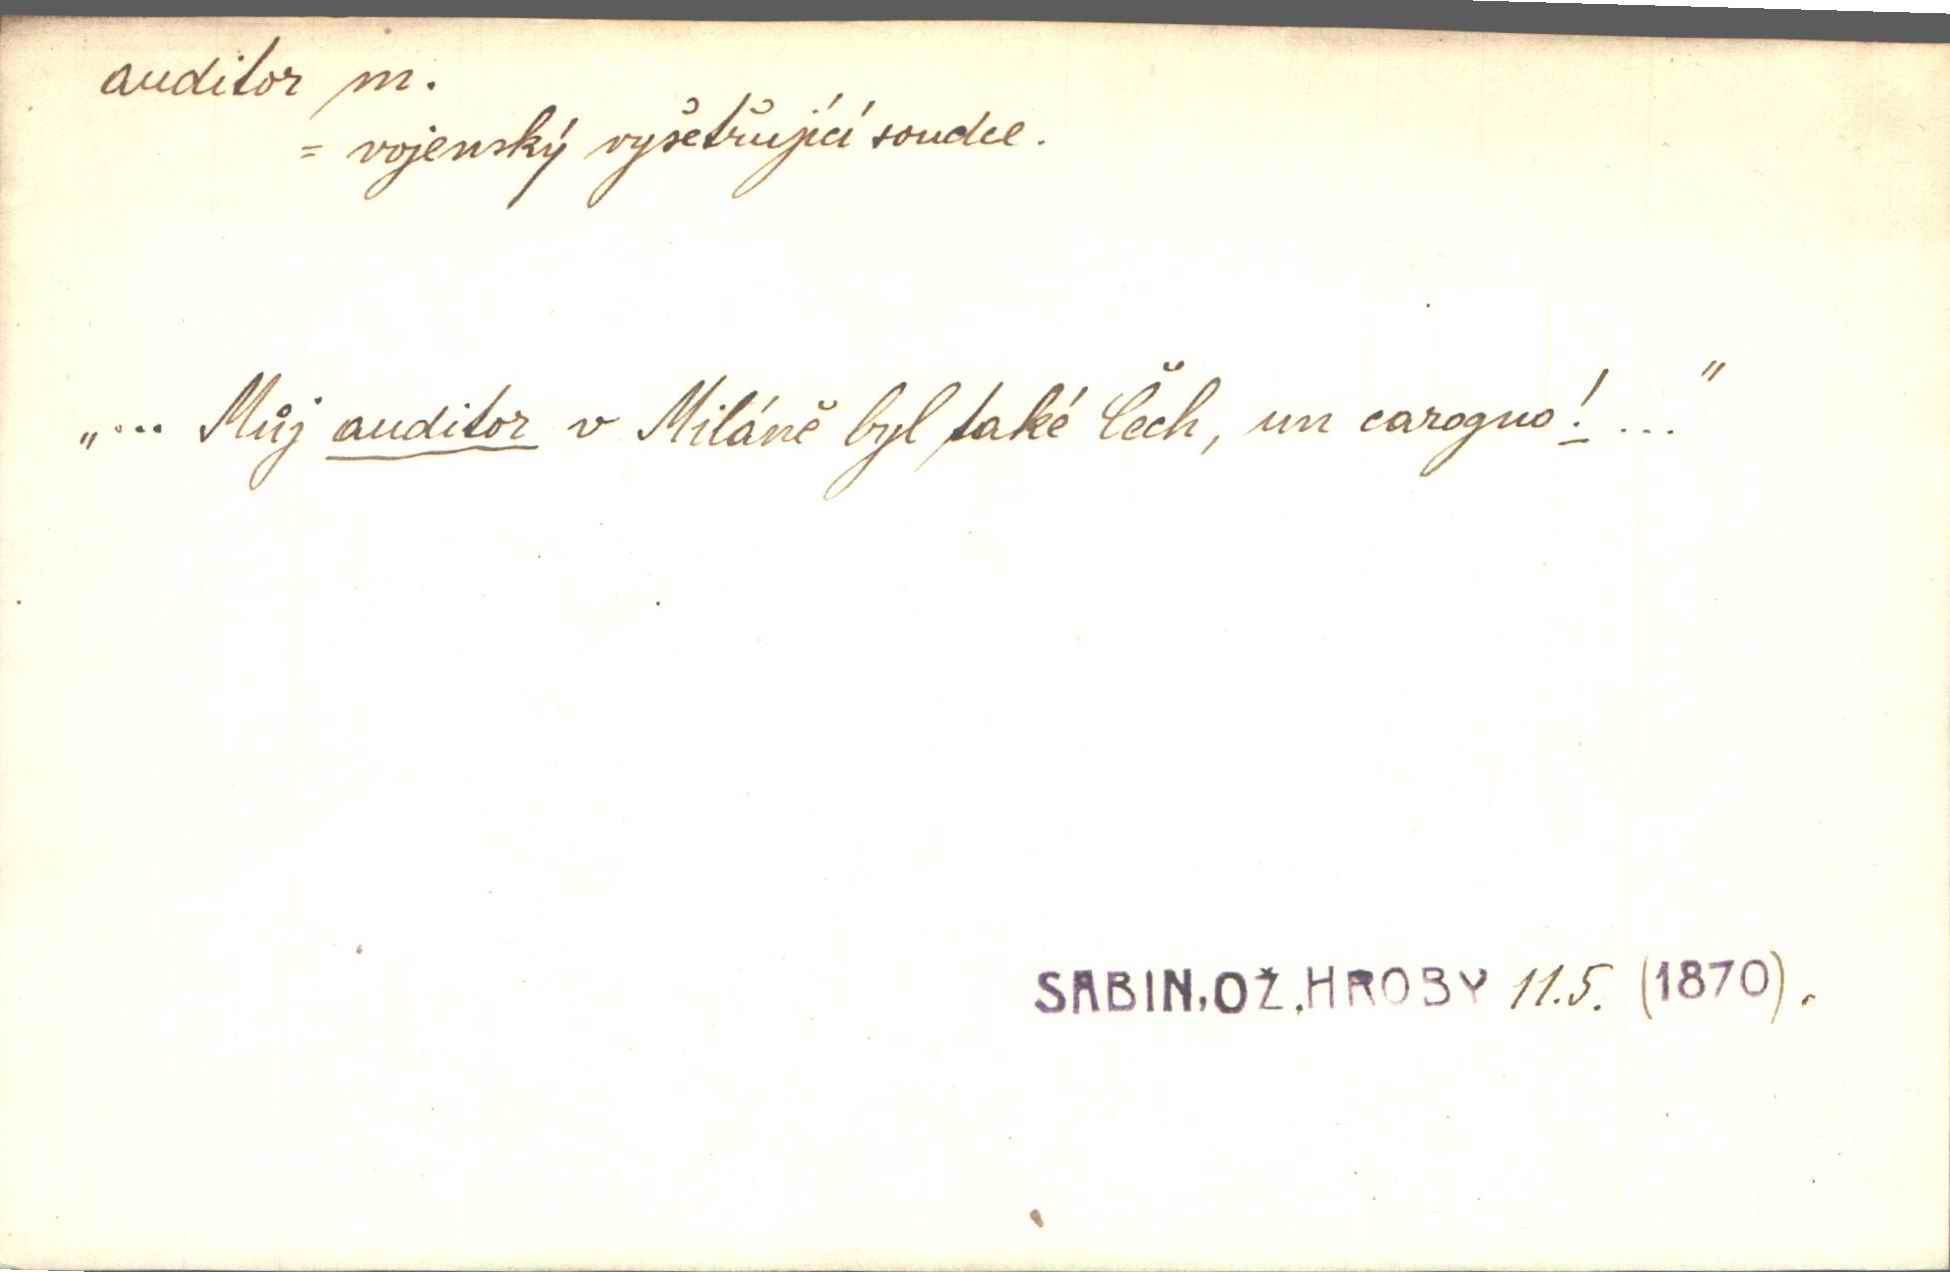 auditor m.
= vojenský vyšetřující soudce.
„... Můj auditor v Miláně byl také Čech, un carogno! ..."
SABIN, OŽ. HROBY 11.5. (1870).